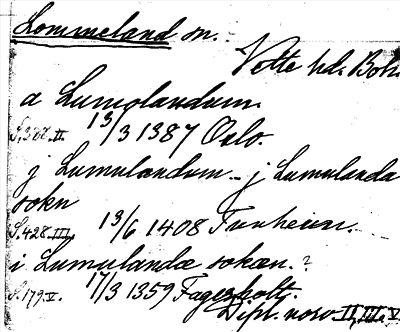 Lommeland sn.
Vette hd. Boh.
a Lumolandum.
S. 388. II. 13/3 1387 Oslo.
j Lumulandum - j Lumulanda
sokn
S. 428. III. 13/6 1408 Tunheim.
i Lumulandæ sokæn. ?
S. 179. V. 17/3 1359 Fagerholt.
Dipl. norv. II, III, V.